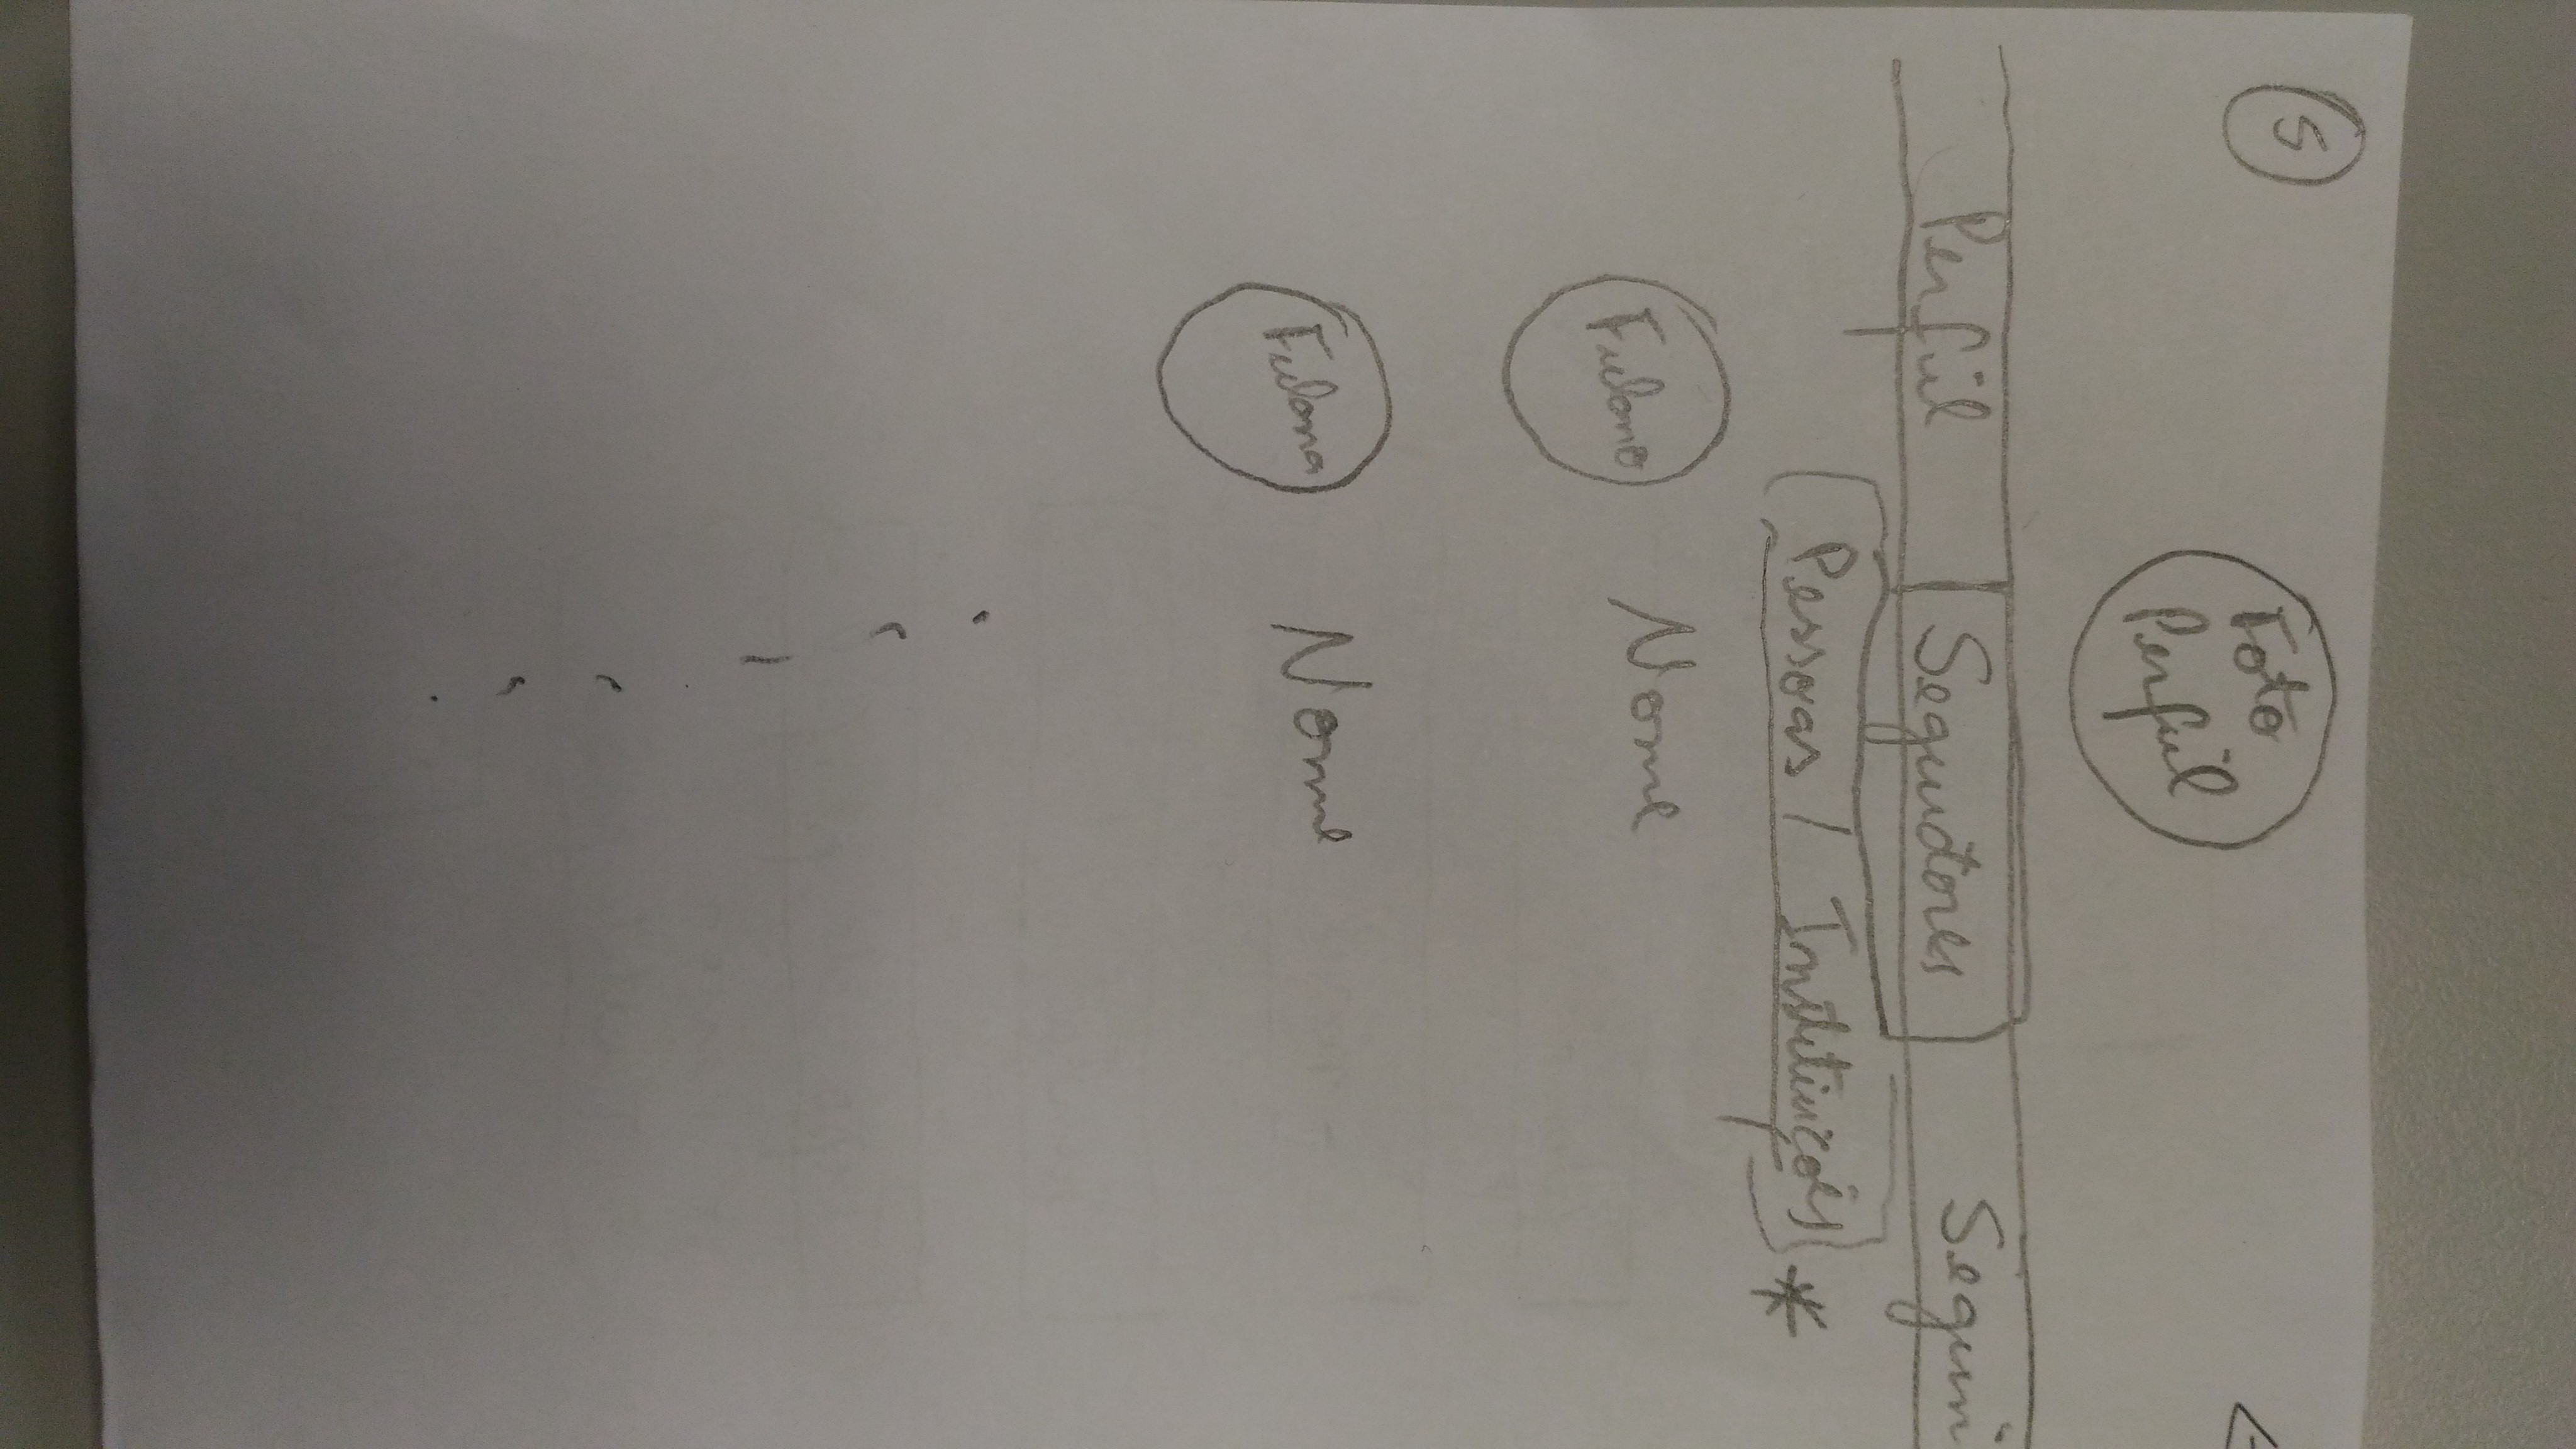 5
Foto
Perfil
Perfil Seguidores Segui
[Pessoas / Instituições] *
Fulano Nome
Fulana Nome